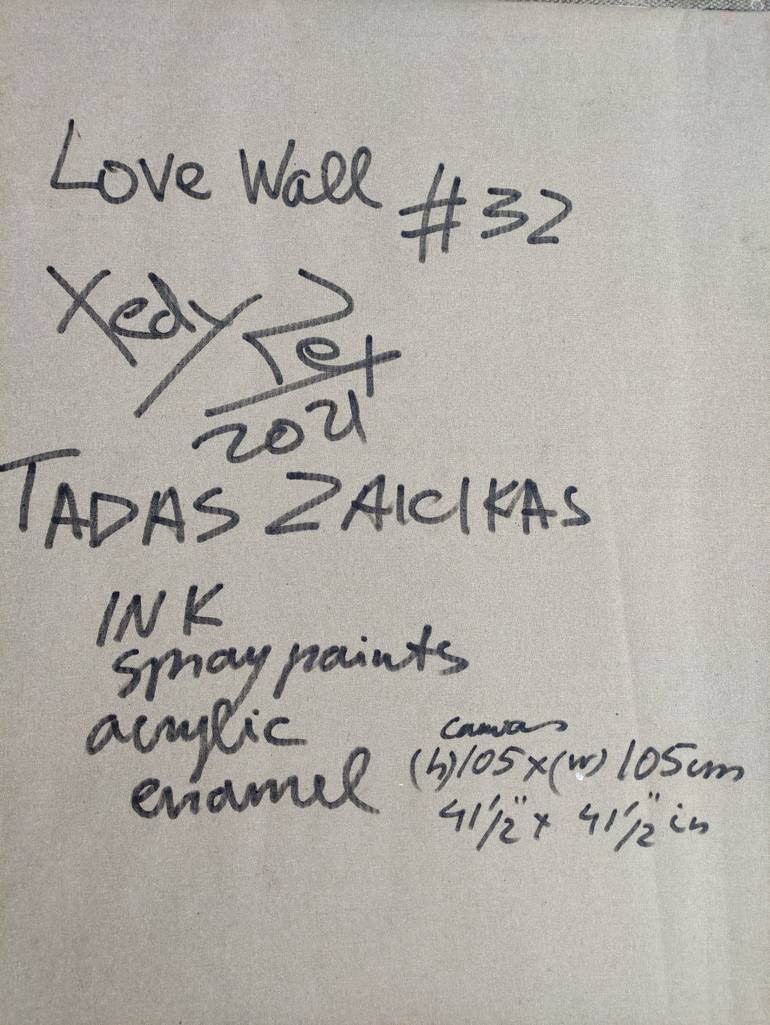 Love Wall #32
Xedy Zet
2021
TADAS ZAICIKAS
INK
spray paints
acrylic
enamel
canvas
(h)105 x (w) 105cm
41 1/2" x 41 1/2" in